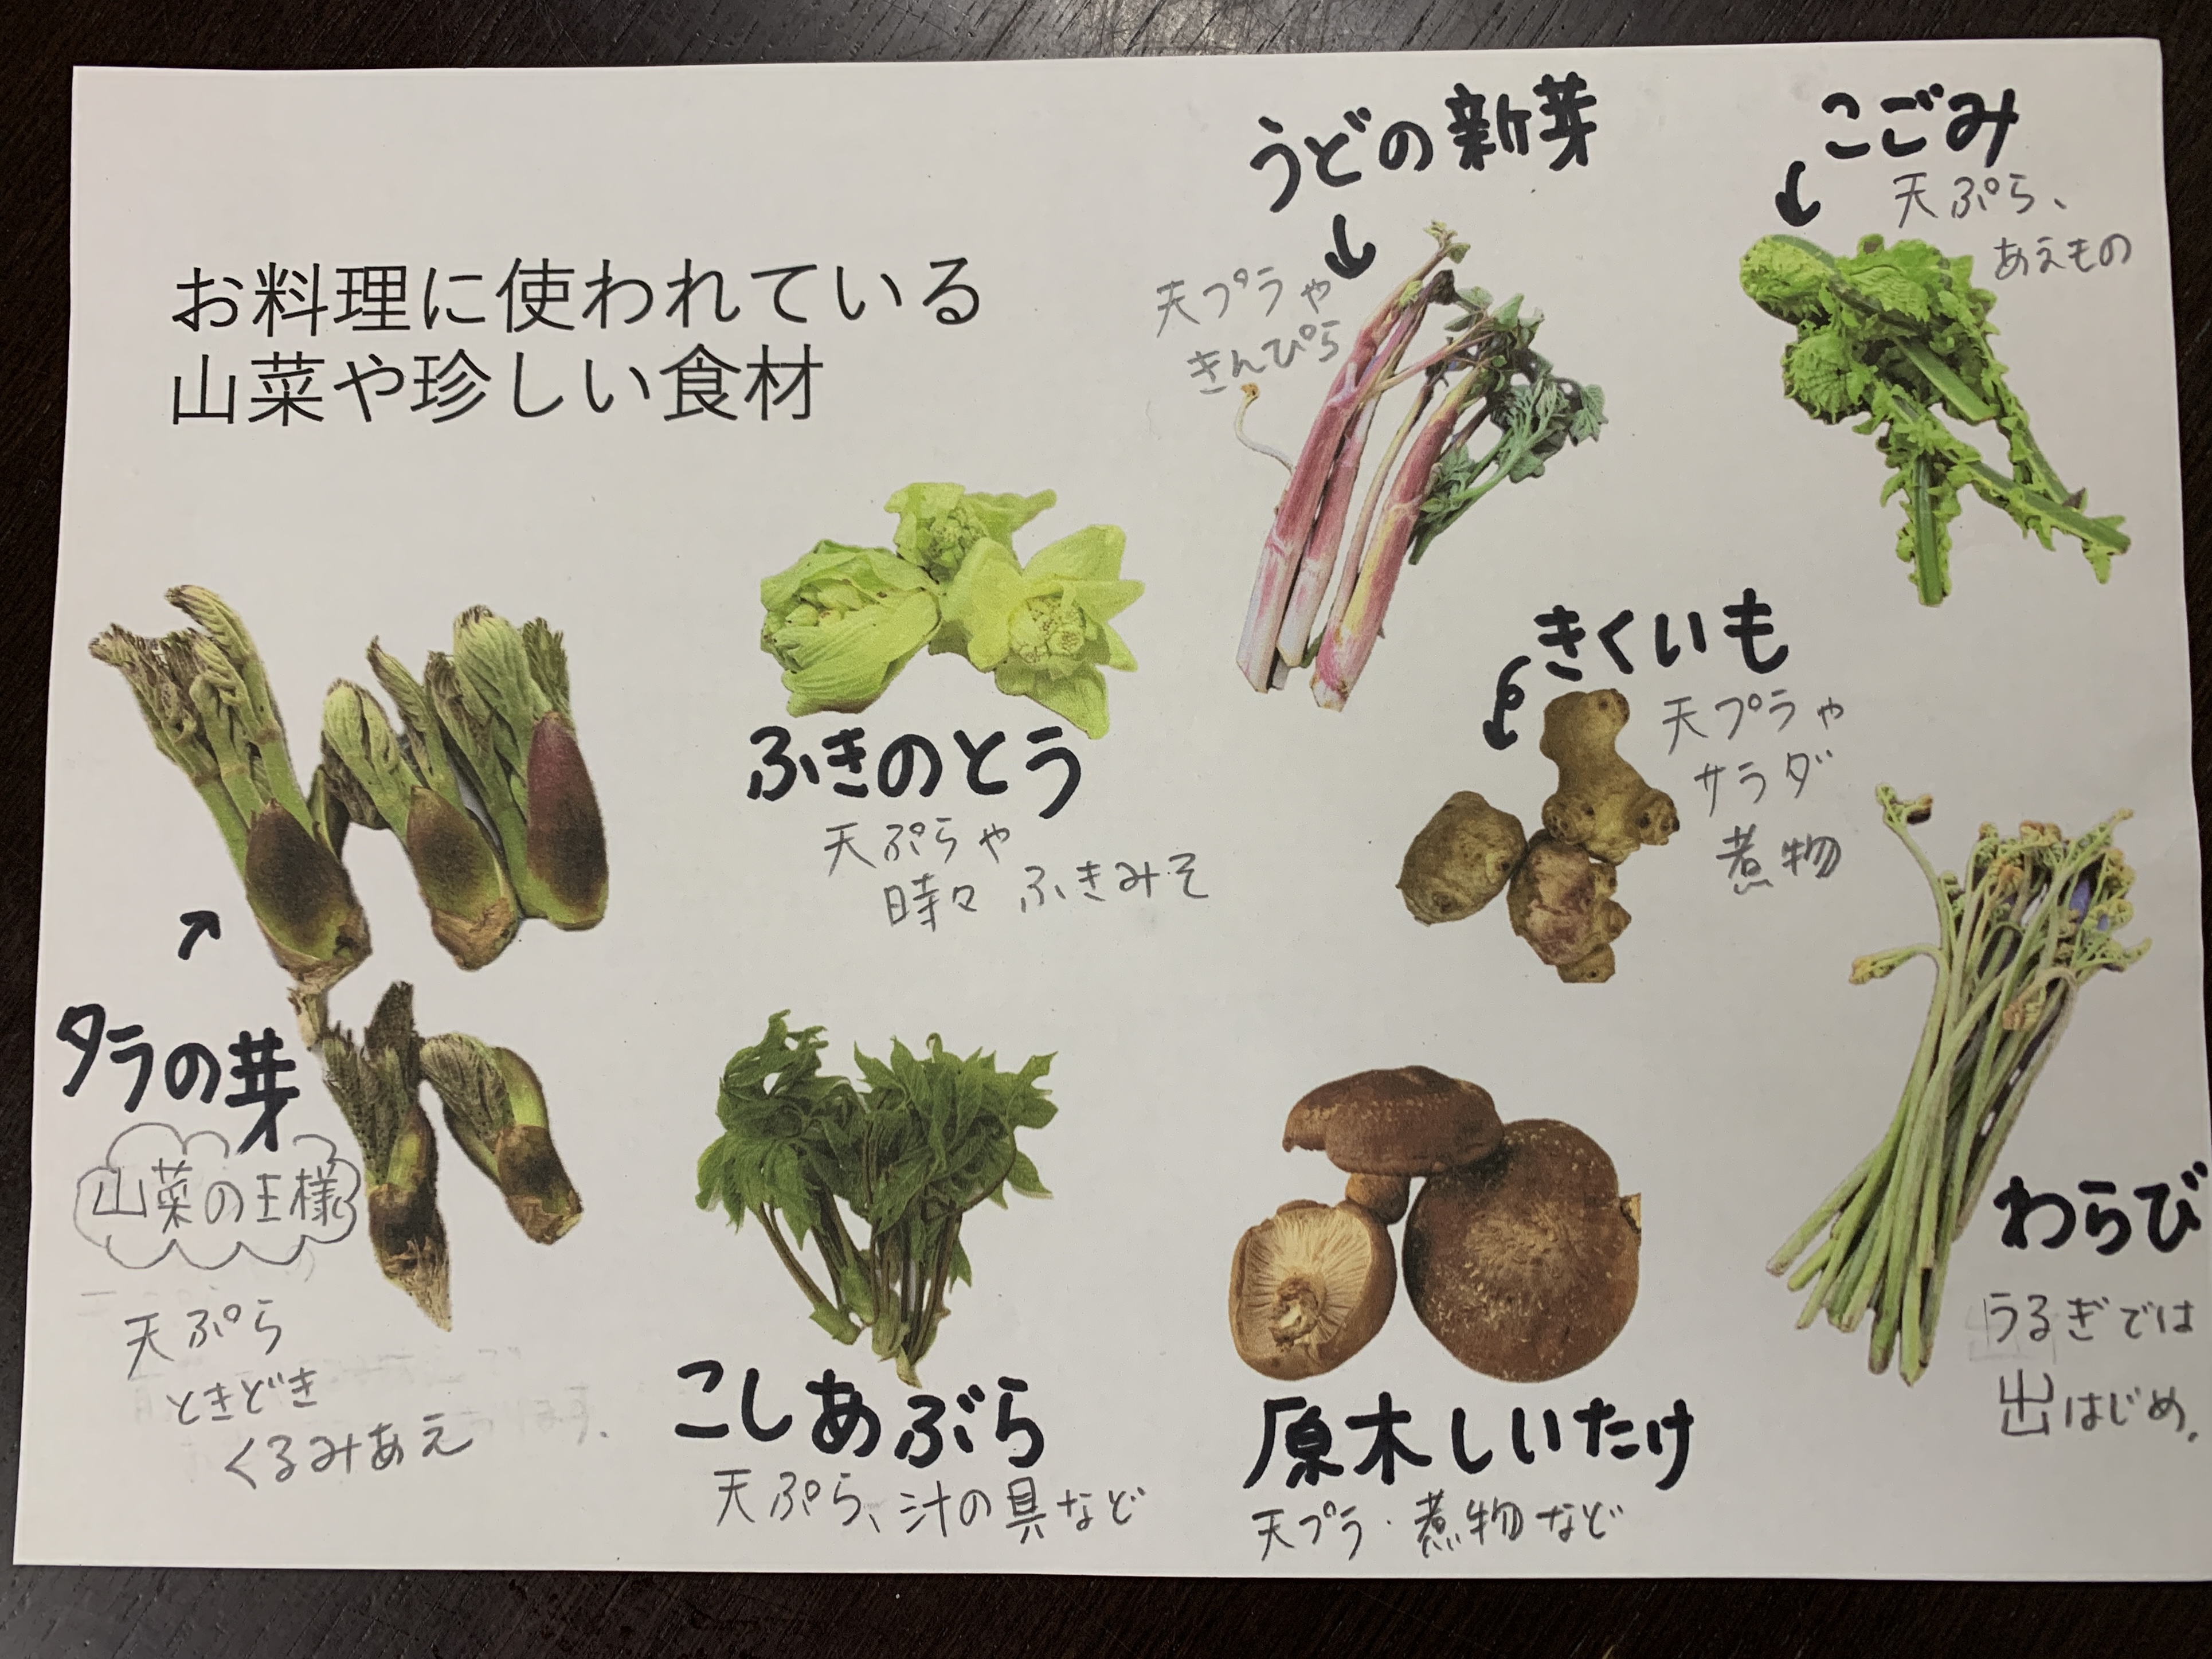 お料理に使われている
山菜や珍しい食材
うどの新芽
天プラや
きんぴら
こごみ
天ぷら、
あえもの
ふきのとう
天ぷらや
時々 ふきみそ
きくいも
天プラや
サラダ
煮物
タラの芽
山菜の王様
天ぷら
ときどき
くるみあえ
こしあぶら
天ぷら、汁の具など
原木しいたけ
天プラ・煮物など
わらび
うるぎでは
出はじめ。